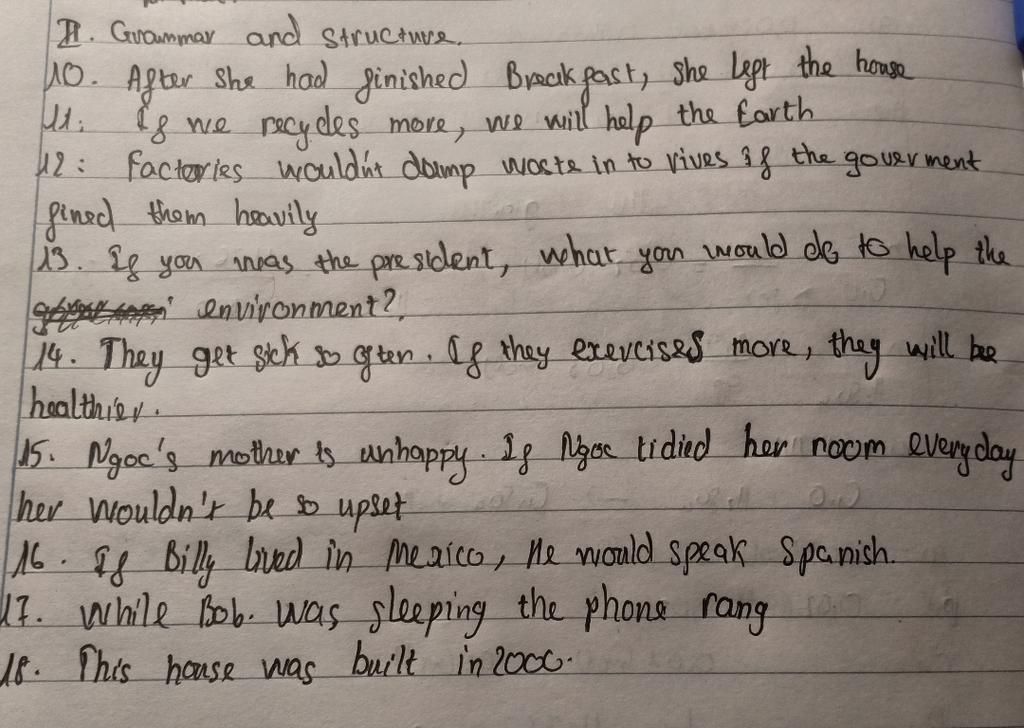 II. Grammar and structure.
10. After she had finished Breakfast, she left the house
11. If we recycles more, we will help the Earth
12: Factories wouldn't dump waste in to rives if the goverment
fined them heavily
13. If you was the president, what you would do to help the
environment?
14. They get sick so often. If they exercises more, they will be
healthier.
15. Ngoc's mother is unhappy. If Ngoc tidied her room everyday
her wouldn't be so upset
16. If Billy lived in Mexico, He would speak Spanish.
17. While Bob. was sleeping the phone rang
18. This house was built in 2000.